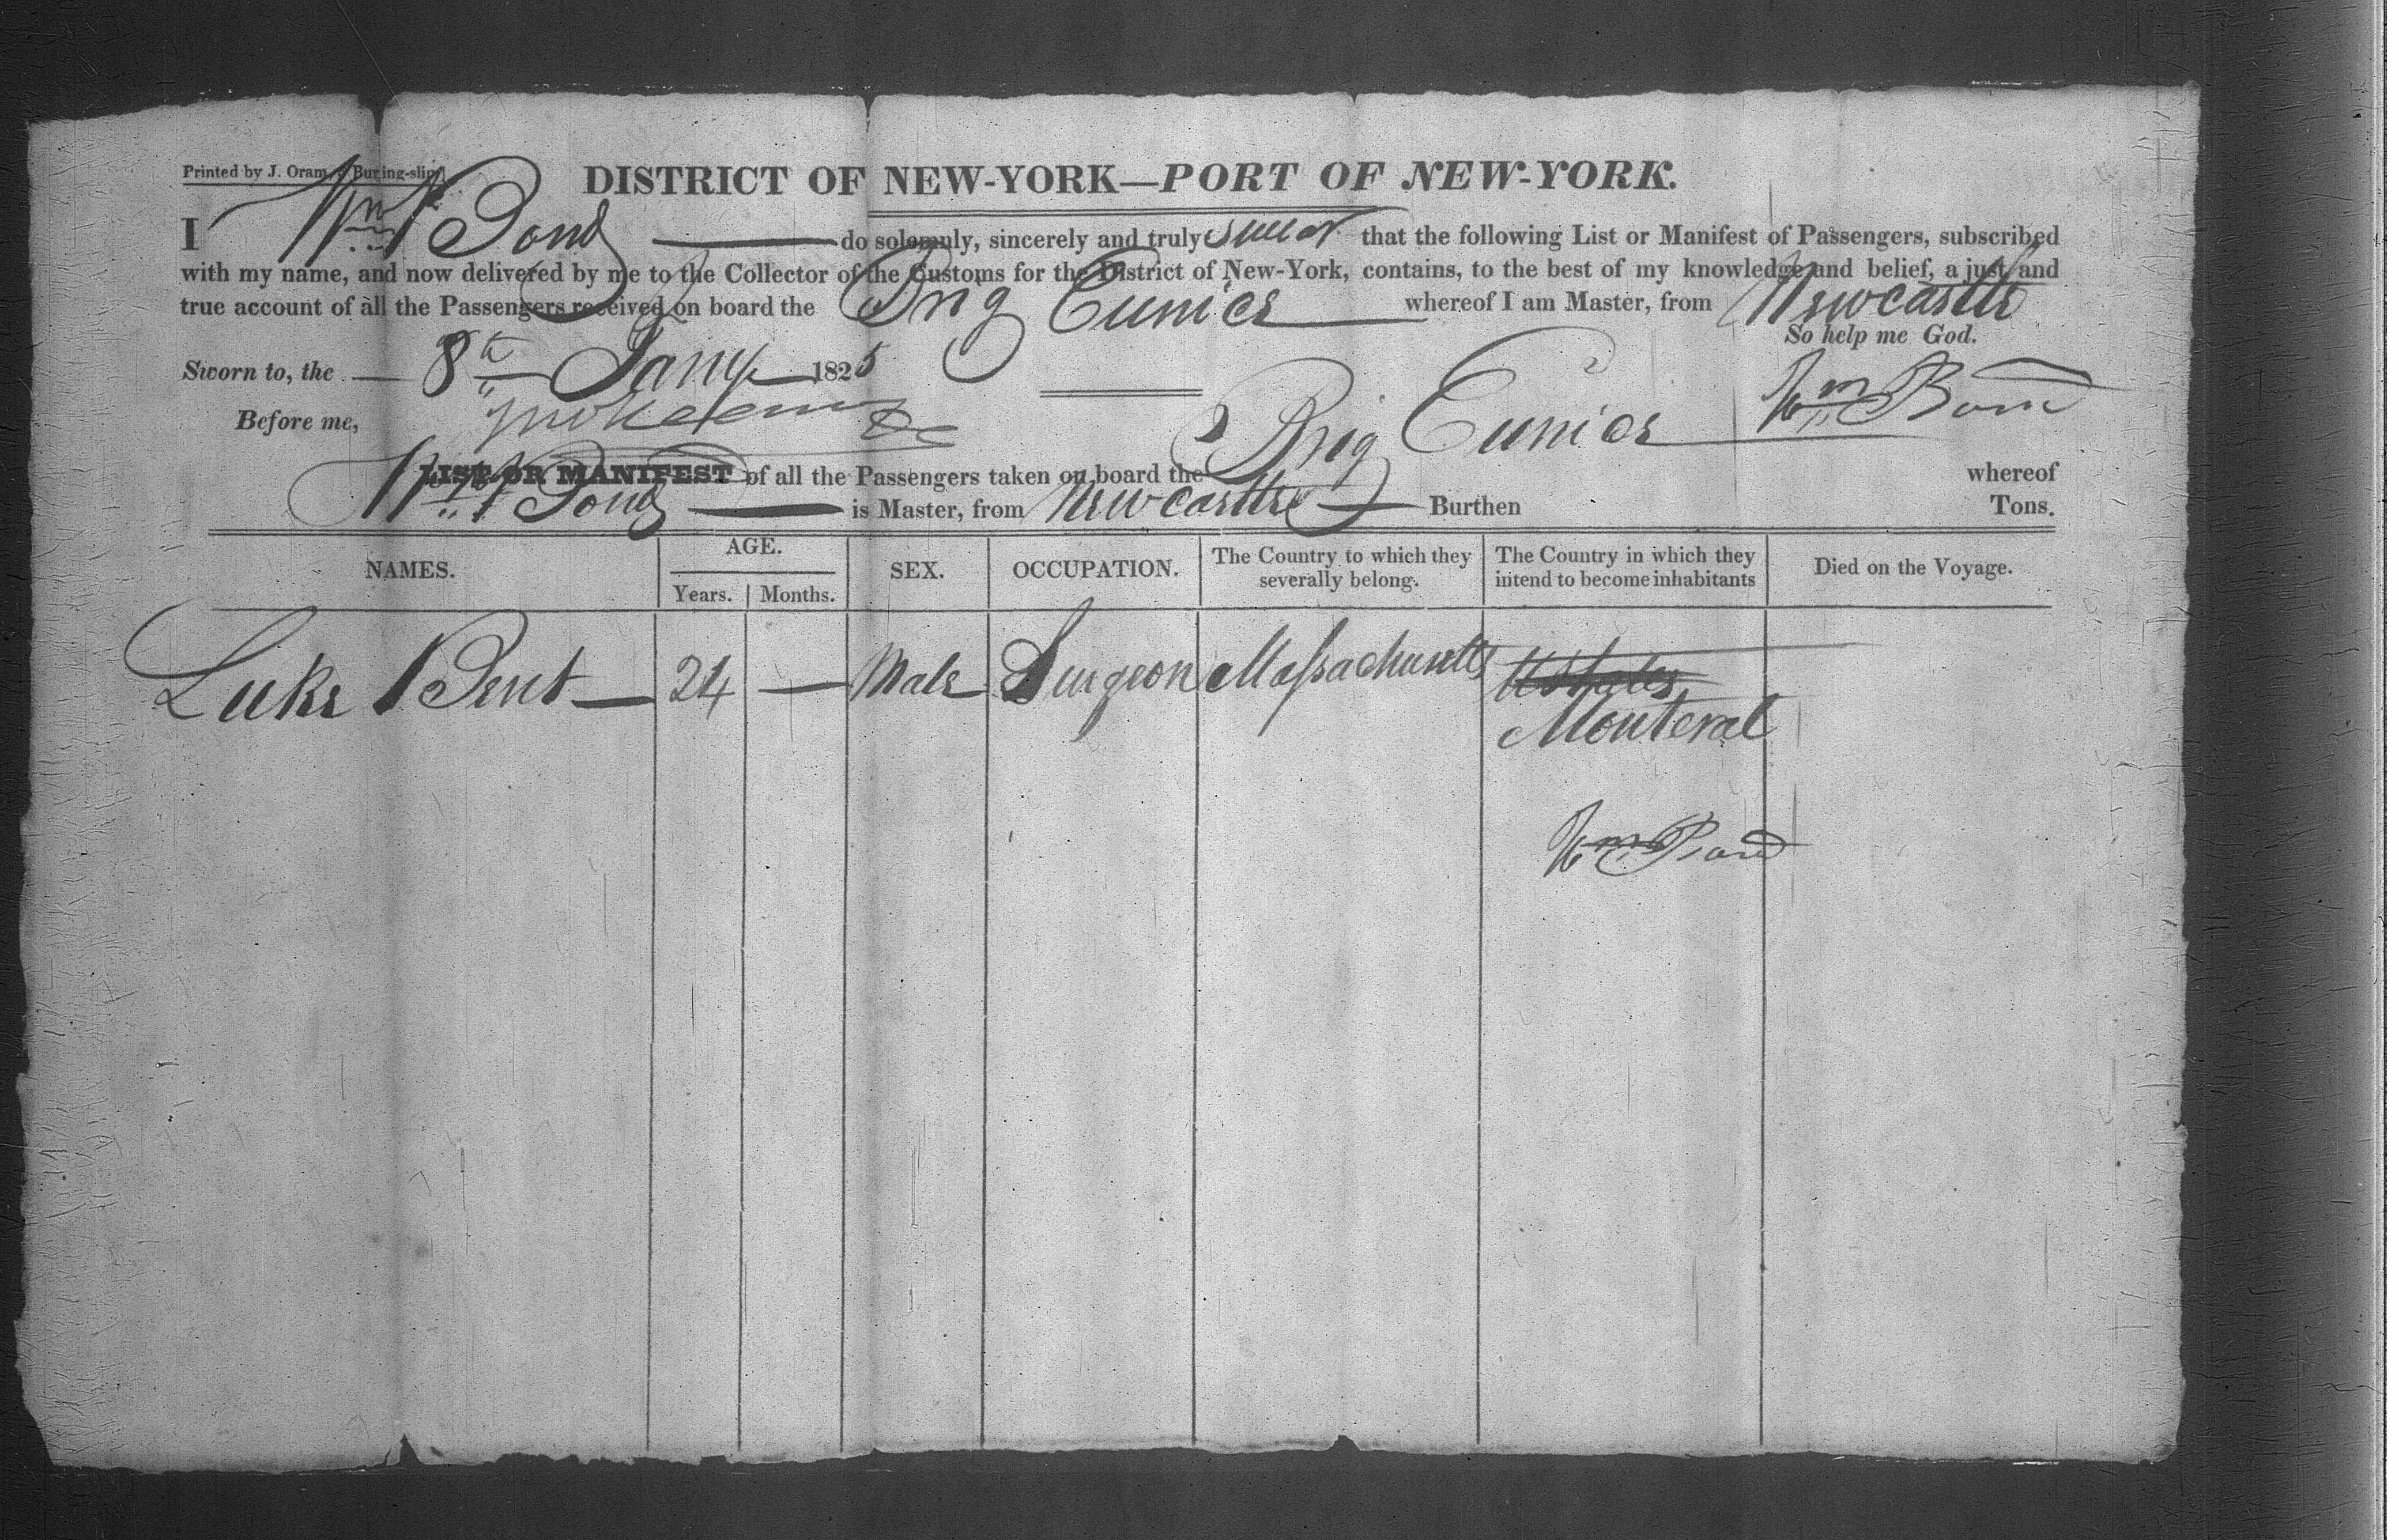 Printed by J. Oram, Burling-slip.
DISTRICT OF NEW-YORK—PORT OF NEW-YORK.
I Wm Bond do solemnly, sincerely and truly swear that the following List or Manifest of Passengers, subscribed
with my name, and now delivered by me to the Collector of the Customs for the District of New-York, contains, to the best of my knowledge and belief, a just and
true account of all the Passengers received on board the Brig Eunice whereof I am Master, from Newcastle
So help me God.
Sworn to, the 8th Jany 1825
Wm Bond
Before me,
LIST OR MANIFEST of all the Passengers taken on board the Brig Eunice whereof
Wm Bond is Master, from Newcastle Burthen Tons.
NAMES. AGE. Years. Months. SEX. OCCUPATION. The Country to which they severally belong. The Country in which they intend to become inhabitants Died on the Voyage.
Luke Bent — 24 — Male Surgeon Massachusetts U States
Monteral
Wm Bond